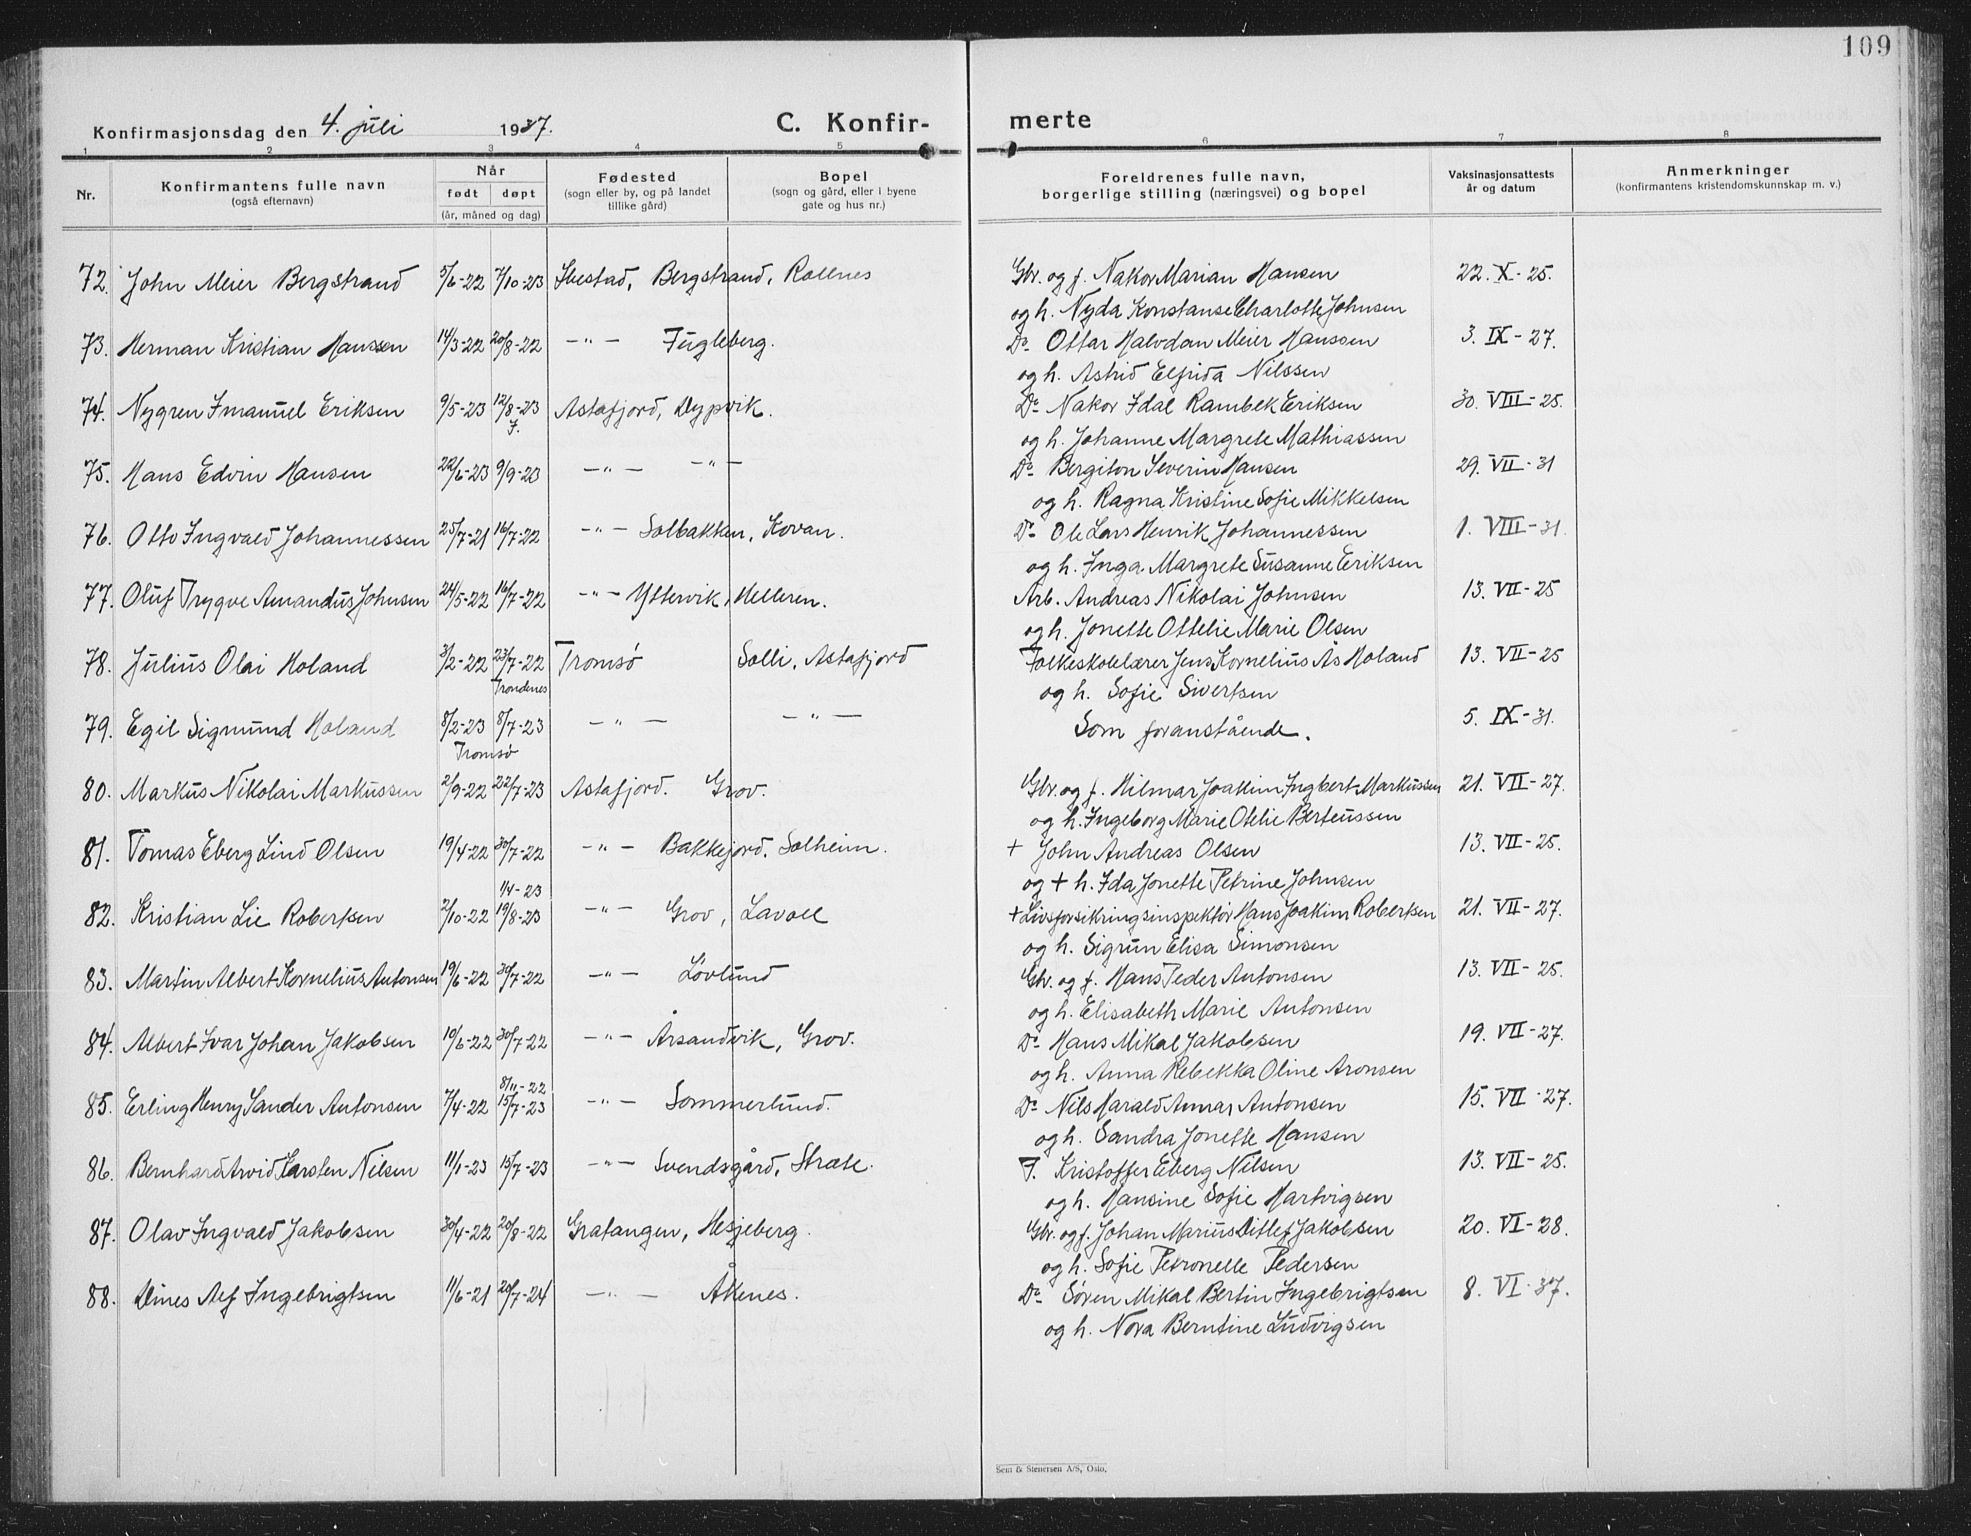 109
Konfirmasjonsdag den 4. juli 1937. C. Konfirmerte
1 2 3 4 5 6 7 8
Nr. Konfirmantens fulle navn (også efternavn) Når født døpt (år, måned og dag) Fødested (sogn eller by, og på landet tillike gård) Bopel (sogn og gård, eller i byene gate og hus nr.) Foreldrenes fulle navn, borgerlige stilling (næringsvei) og bopel Vaksinasjonsattests år og datum Anmerkninger (konfirmantens kristendomskunnskap m. v.)
72. John Meier Bergstrand 5/6-22 7/10-23 Ibestad, Bergstrand, Rollnes Gbr. og f. Nakor Marian Hansen 22. X - 25.
og h. Nyda Konstanse Charlotte Johnsen
73. Herman Kristian Hanssen 14/3-22 20/8-22 -"- Fugleberg. Do Ottar Halvdan Meier Hanssen 3. IX - 27.
og h. Astrid Elfrida Nilssen
74. Nygren Imanuel Eriksen 9/5-23 12/8-23 Astafjord, Dypvik. Do Nakor Idal Rambek Eriksen 30. VIII - 25.
f.
og h. Johanne Margrete Mathiassen
75. Hans Edvin Hansen 22/6-23 9/9-23 -"- -"- Do Bergiton Severin Hansen 29. VII - 31
og h. Ragna Kristine Sofie Mikkelsen
76. Otto Ingvald Johannessen 25/7-21 16/7-22 -"- Solbakken, Kovan. Do Ole Lars Henrik Johannessen 1. VIII - 31.
og h. Inga Margrete Susanne Eriksen
77. Oluf Trygve Amandus Johnsen 24/5-22 16/7-22 -"- Yttervik, Helleren. Arb. Andreas Nikolai Johnsen 13. VII - 25
og h. Jonette Ottelie Marie Olsen
78. Julius Olai Holand 3/2-22 23/7-22 Tromsø Solli, Astafjord Folkeskolelærer Jens Kornelius Ås Holand 13. VII - 25
Trondenes
og h. Sofie Sivertsen
79. Egil Sigmund Holand 8/2-23 8/7-23 -"- -"- Som foranstående. 5. IX - 31.
Tromsø
80. Markus Nikolai Markussen 2/9-22 22/7-23 Astafjord. Grov. Gbr. og f. Hilmar Joakim Ingbert Markussen 21. VII - 27.
og h. Ingeborg Marie Otelie Berteussen
81. Tomas Eberg Lind Olsen 19/4-22 30/7-22 -"- Bakkejord. Solheim. + John Andreas Olsen 13. VII - 25.
og + h. Ida Jonette Petrine Johnsen
1/4-23
82. Kristian Lie Robertsen 2/10-22 19/8-23 -"- Grov, Lavoll + Livsforsikringsinspektør Hans Joakim Robertsen 21. VII - 27.
og h. Sigrun Elisa Simonsen
83. Martin Albert Kornelius Antonsen 19/6-22 30/7-22 -"- Løvlund Gbr. og f. Hans Peder Antonsen 13. VII - 25.
og h. Elisabeth Marie Antonsen
84. Albert Ivar Johan Jakobsen 10/6-22 30/7-22 -"- Årsandvik, Grov. Do Hans Mikal Jakobsen 19. VII - 27.
og h. Anna Rebekka Oline Aronsen
8/11-22
85. Erling Henry Sander Antonsen 7/4-22 15/7-23 -"- Sommerlund. Do Nils Harald Annar Antonsen 15. VII - 27.
og h. Sandra Jonette Hansen
86. Bernhard Arvid Karsten Nilsen 11/1-23 15/7-23 -"- Svendsgård, Stræte. F. Kristoffer Eberg Nilsen 13. VII - 25.
og h. Hansine Sofie Hartvigsen
87. Olav Ingvald Jakobsen 30/4-22 20/8-22 Gratangen, Hesjeberg. Gbr. og f. Johan Marius Ditlef Jakobsen 20. VI - 28.
og h. Sofie Petronelle Pedersen
88. Dines Alf Ingebrigtsen 11/6-21 20/7-24 -"- Åkenes. Do Søren Mikal Bertin Ingebrigtsen 8. VI - 37.
og h. Nora Berntine Ludvigsen
Sem & Stenersen A/S, Oslo.